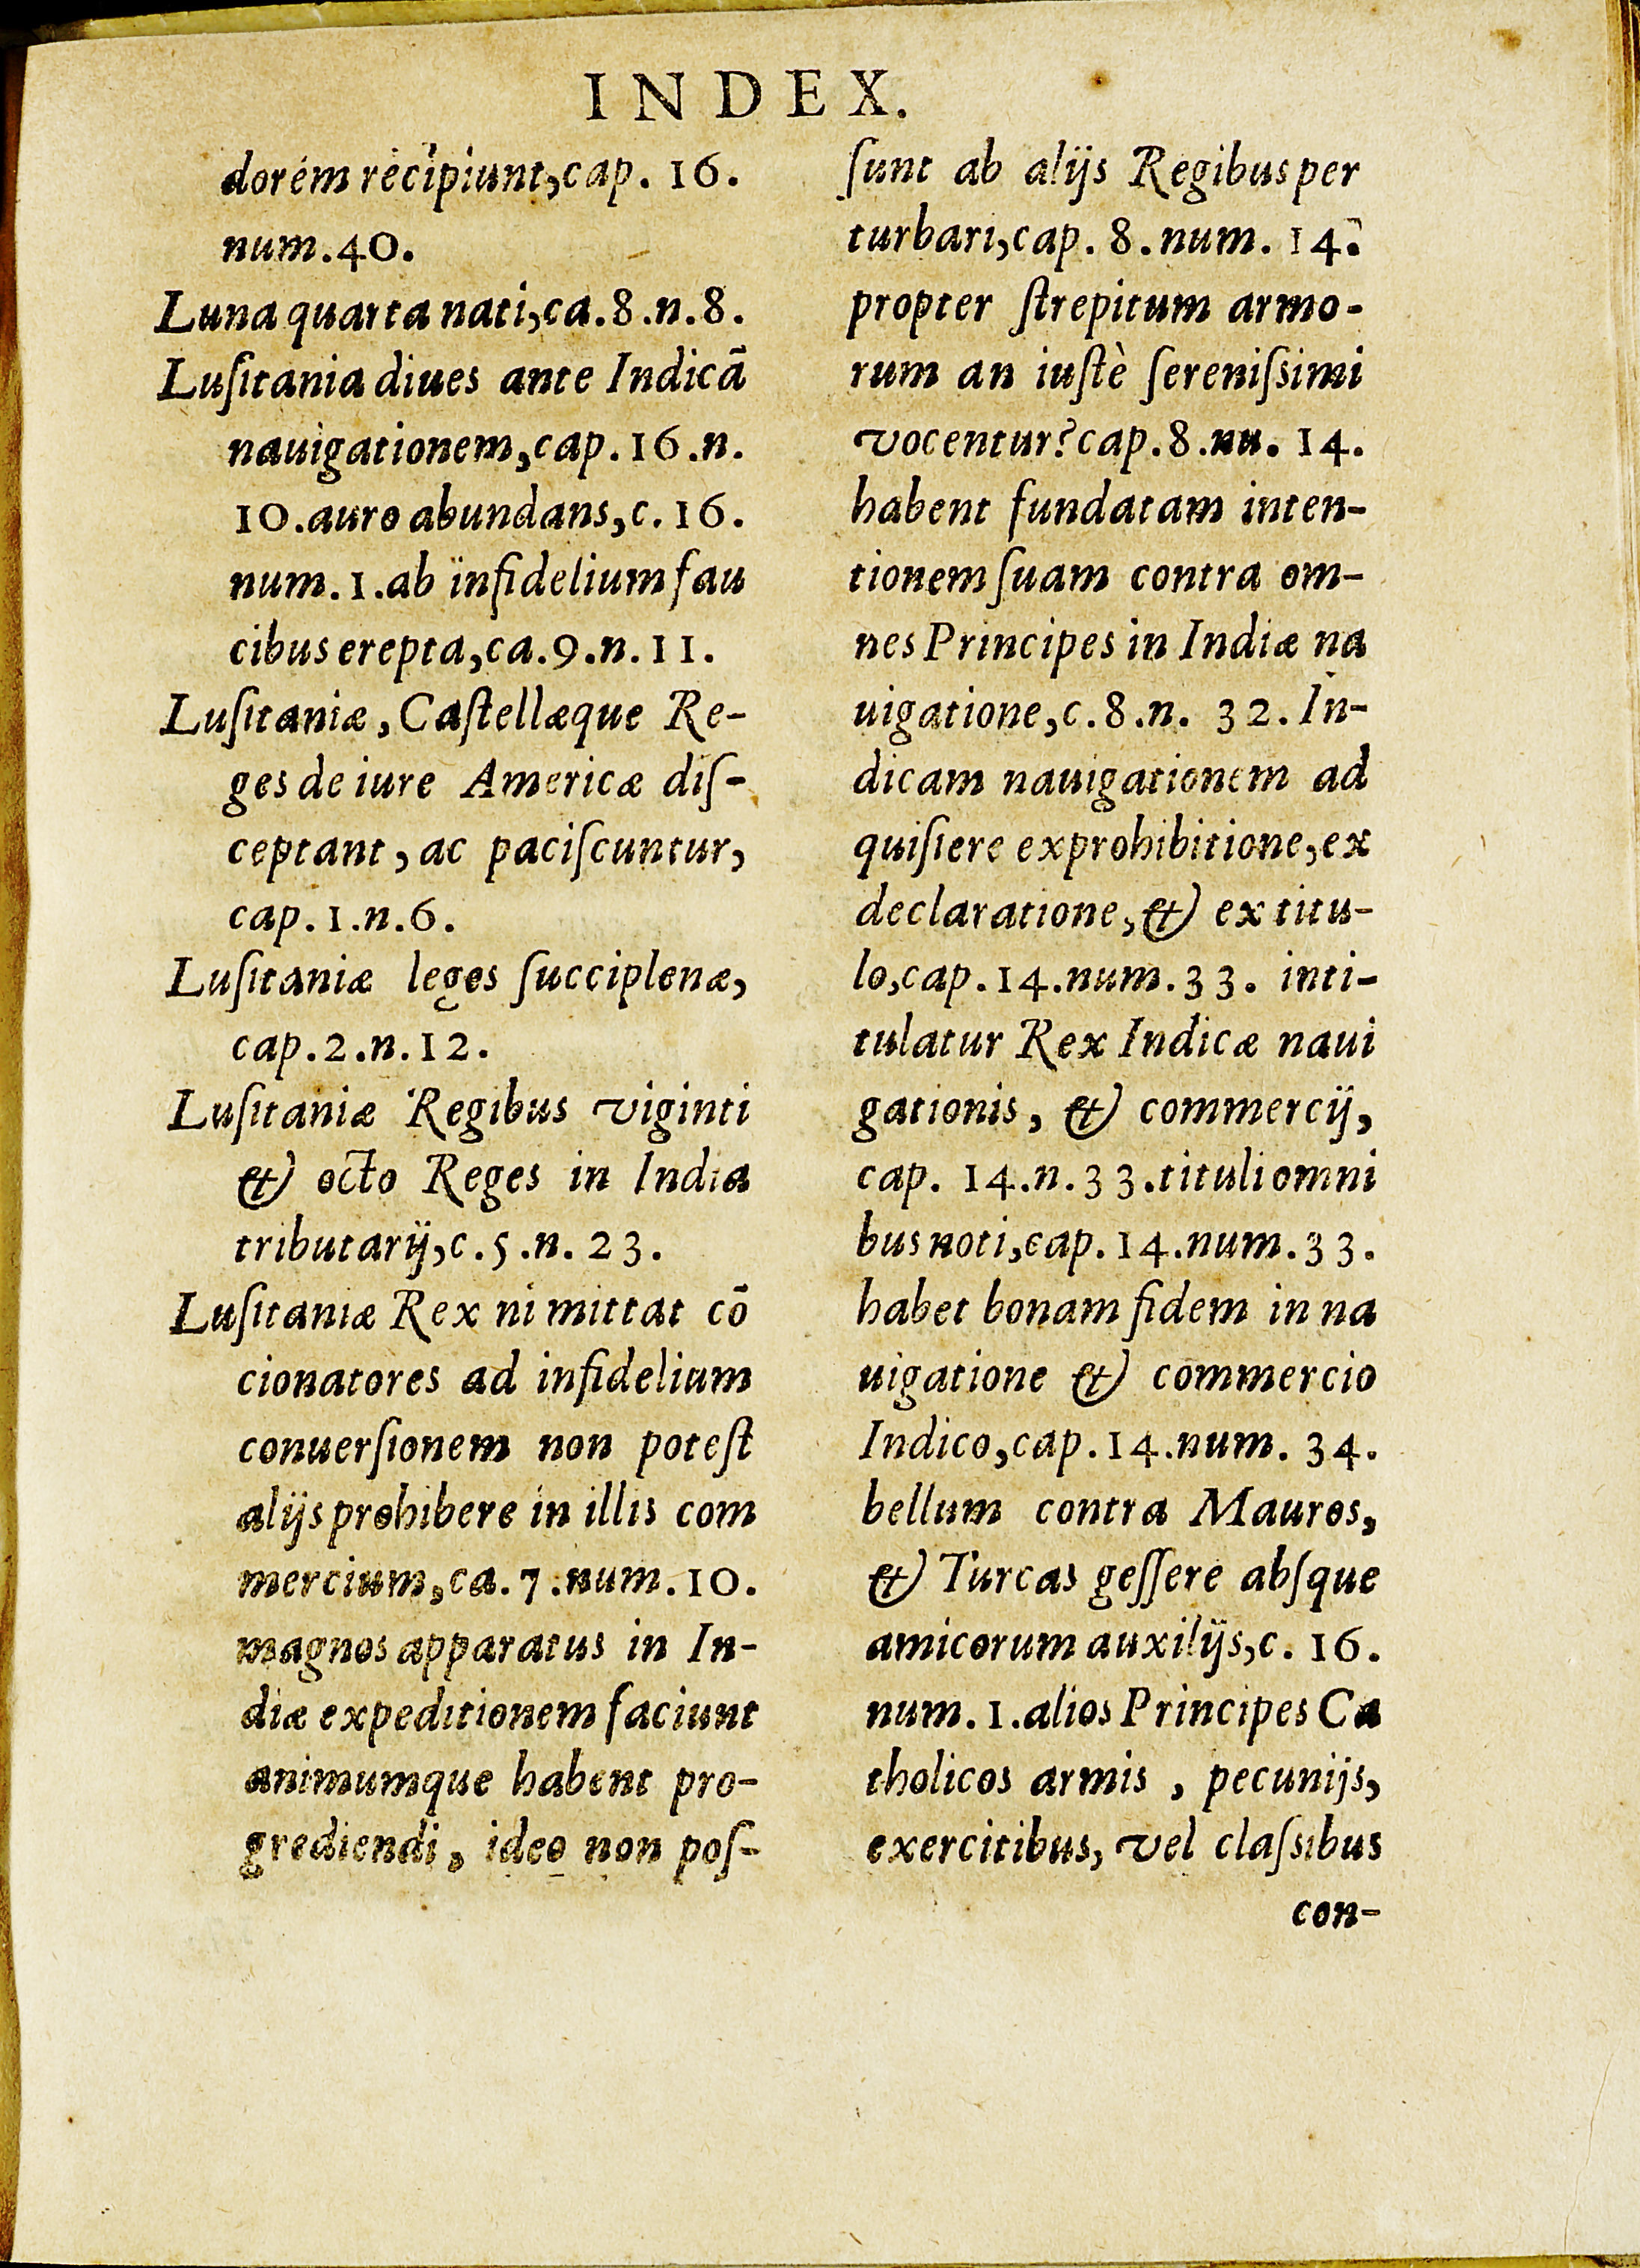 INDEX.
dorem recipiunt,cap. 16.
num.40.
Luna quarta nati,ca.8.n.8.
Luſitania diues ante Indicã
nauigationem,cap.16.n.
10.auro abundans,c.16.
num.1.ab infidelium fau
cibus erepta,ca.9.n.11.
Luſitaniæ, Caſtellæque Re-
ges de iure Americæ diſ-
ceptant, ac paciſcuntur,
cap.1.n.6.
Luſitaniæ leges ſucciplenæ,
cap.2.n.12.
Luſitaniæ Regibus viginti
& octo Reges in India
tributarij,c.5.n.23.
Luſitaniæ Rex ni mittat cō
cionatores ad infidelium
conuerſionem non poteſt
alijs prohibere in illis com
mercium,ca.7.num.10.
magnos apparatus in In-
diæ expeditionem faciunt
animumque habent pro-
grediendi, ideo non poſ-
ſunt ab alijs Regibus per
turbari,cap.8.num.14.
propter ſtrepitum armo-
rum an iuſtè ſereniſsimi
vocentur?cap.8.nu.14.
habent fundatam inten-
tionem ſuam contra om-
nes Principes in Indiæ na
uigatione,c.8.n. 32.In-
dicam nauigationem ad
quiſiere exprohibitione,ex
declaratione,& ex titu-
lo,cap.14.num.33. inti-
tulatur Rex Indicæ naui
gationis, & commercij,
cap. 14.n.33.tituli omni
bus noti,cap.14.num.33.
habet bonam fidem in na
uigatione & commercio
Indico,cap.14.num. 34.
bellum contra Mauros,
& Turcas geſſere abſque
amicorum auxilijs,c. 16.
num.1.alios Principes Ca
tholicos armis , pecunijs,
exercitibus, vel claſsibus
con-